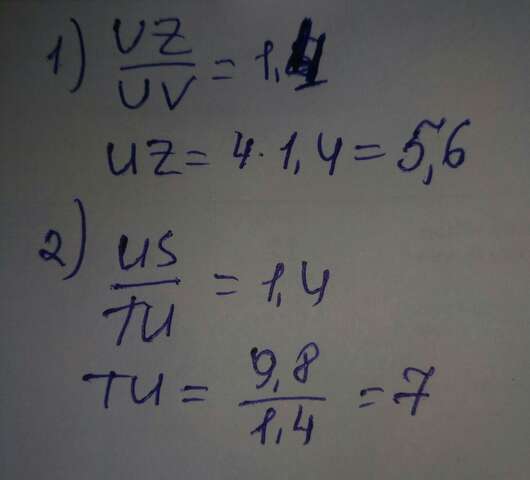 1) UZ/UV = 1,4
UZ = 4 · 1,4 = 5,6
2) US/TU = 1,4
TU = 9,8/1,4 = 7